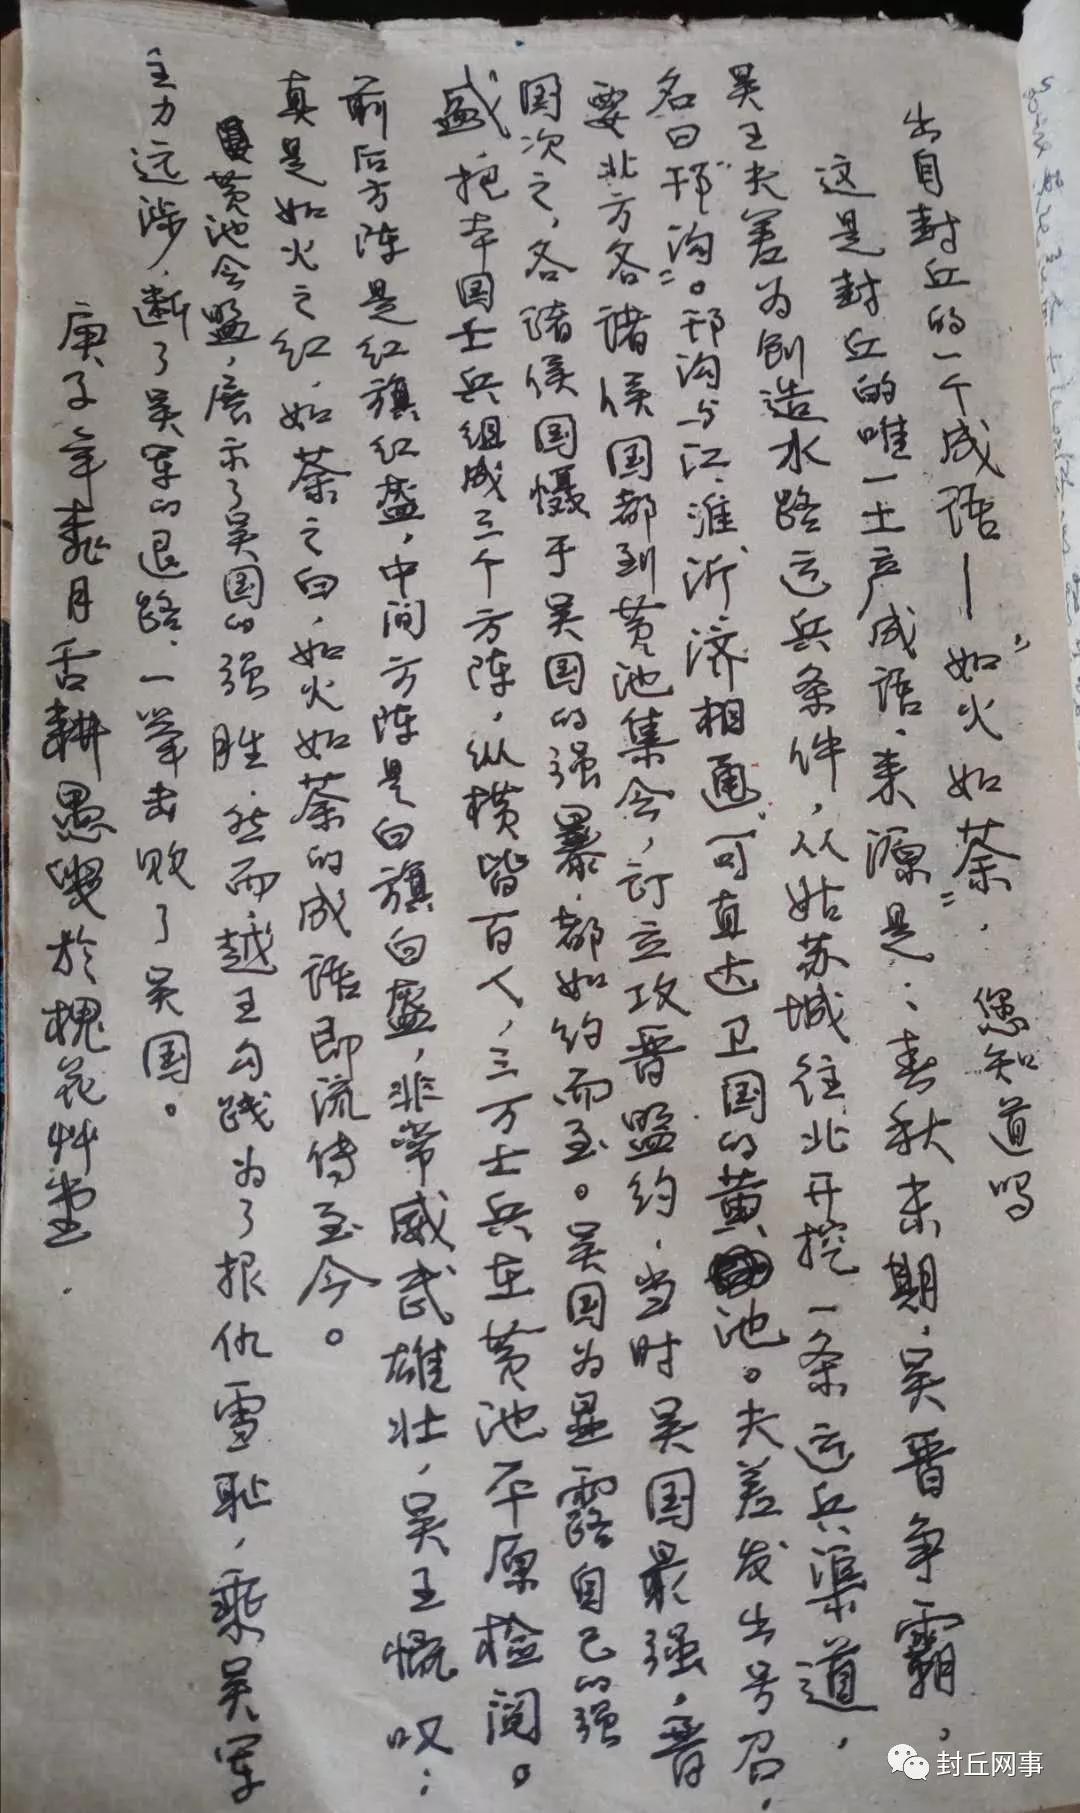 出自封丘的一个成语—“如火如荼”，您知道吗
这是封丘的唯一土产成语，来源是：春秋末期，吴晋争霸，
吴王夫差为创造水路运兵条件，从姑苏城往北开挖一条运兵渠道，
名曰“邗沟”。邗沟与江、淮、沂、济相通，可直达卫国的黄池。夫差发出号召，
要北方各诸侯国都到黄池集会，订立攻晋盟约，当时吴国最强，晋
国次之，各诸侯国慑于吴国的强暴，都如约而至。吴国为显露自己的强
盛，把本国士兵组成三个方阵，纵横皆百人，三万士兵在黄池平原检阅。
前后方阵是红旗红盔，中间方阵是白旗白盔，非常威武雄壮，吴王慨叹：
真是如火之红，如荼之白，如火如荼的成语即流传至今。
黄池会盟，展示了吴国的强胜，然而，越王勾践为了报仇雪耻，乘吴军
主力远涉，断了吴军的退路，一举击败了吴国。
庚子年 月舌耕愚叟於槐花艸堂.
封丘网事